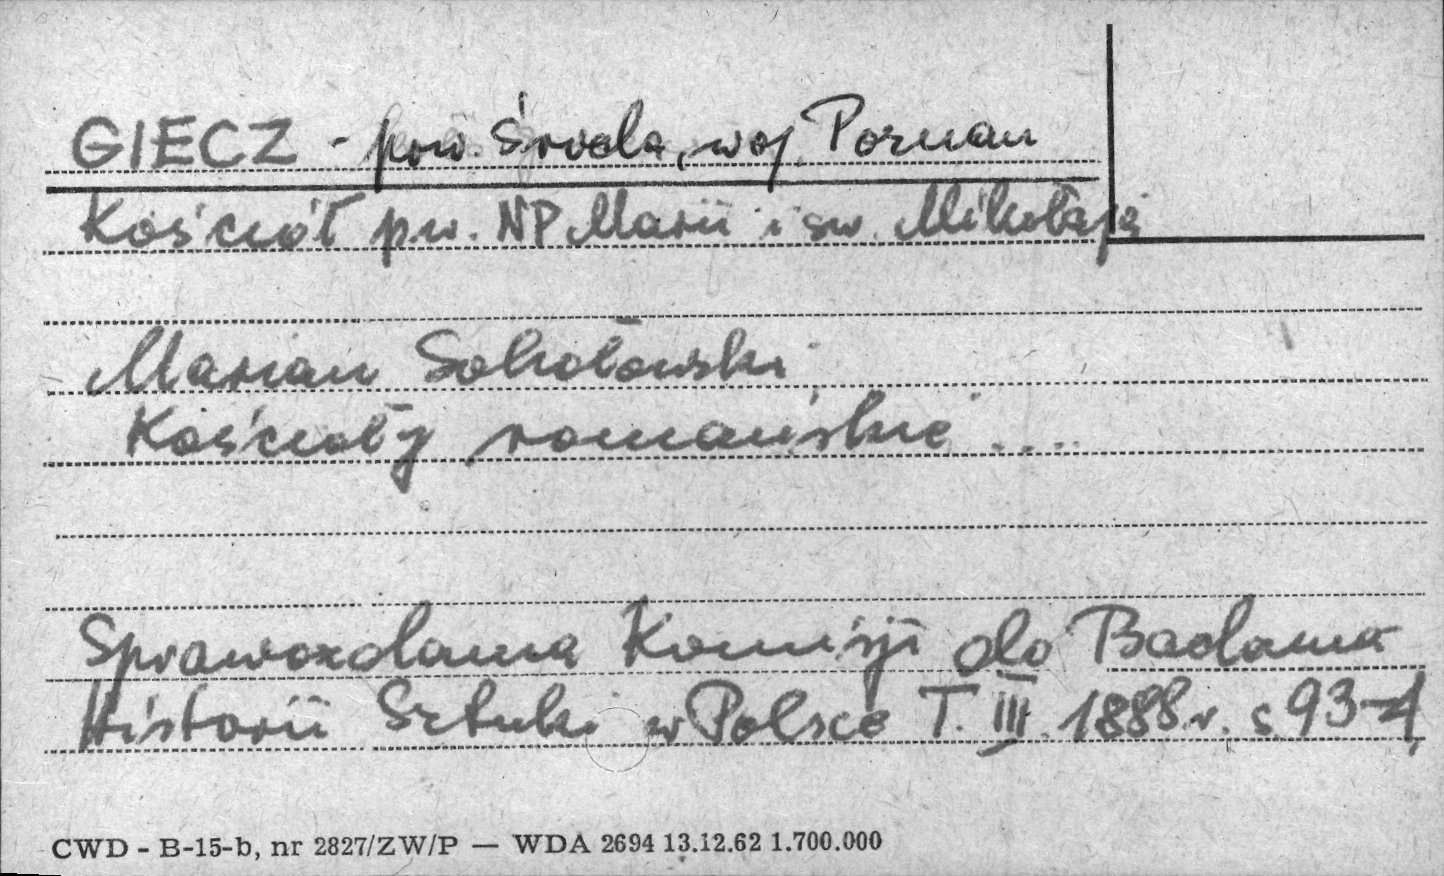 GIECZ - pow. Środa, woj. Poznań
Kościół pw. NP Marii i św. Mikołaja
Marian Sokołowski
Kościoły romańskie ....
Sprawozdania Komisji do Badania
Historii Sztuki w Polsce T. III. 1888 r. s. 93-4
CWD - B-15-b, nr 2827/ZW/P — WDA 2694 13.12.62 1.700.000